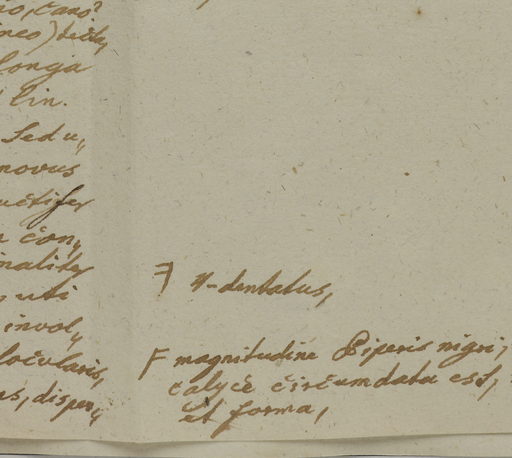 longa
lin.
Sedu„
novus
uti
invol„
locularis,
disper„
4-dentatus,
F magnitudine Piperis nigri,
calyce circumdata est,
et forma,